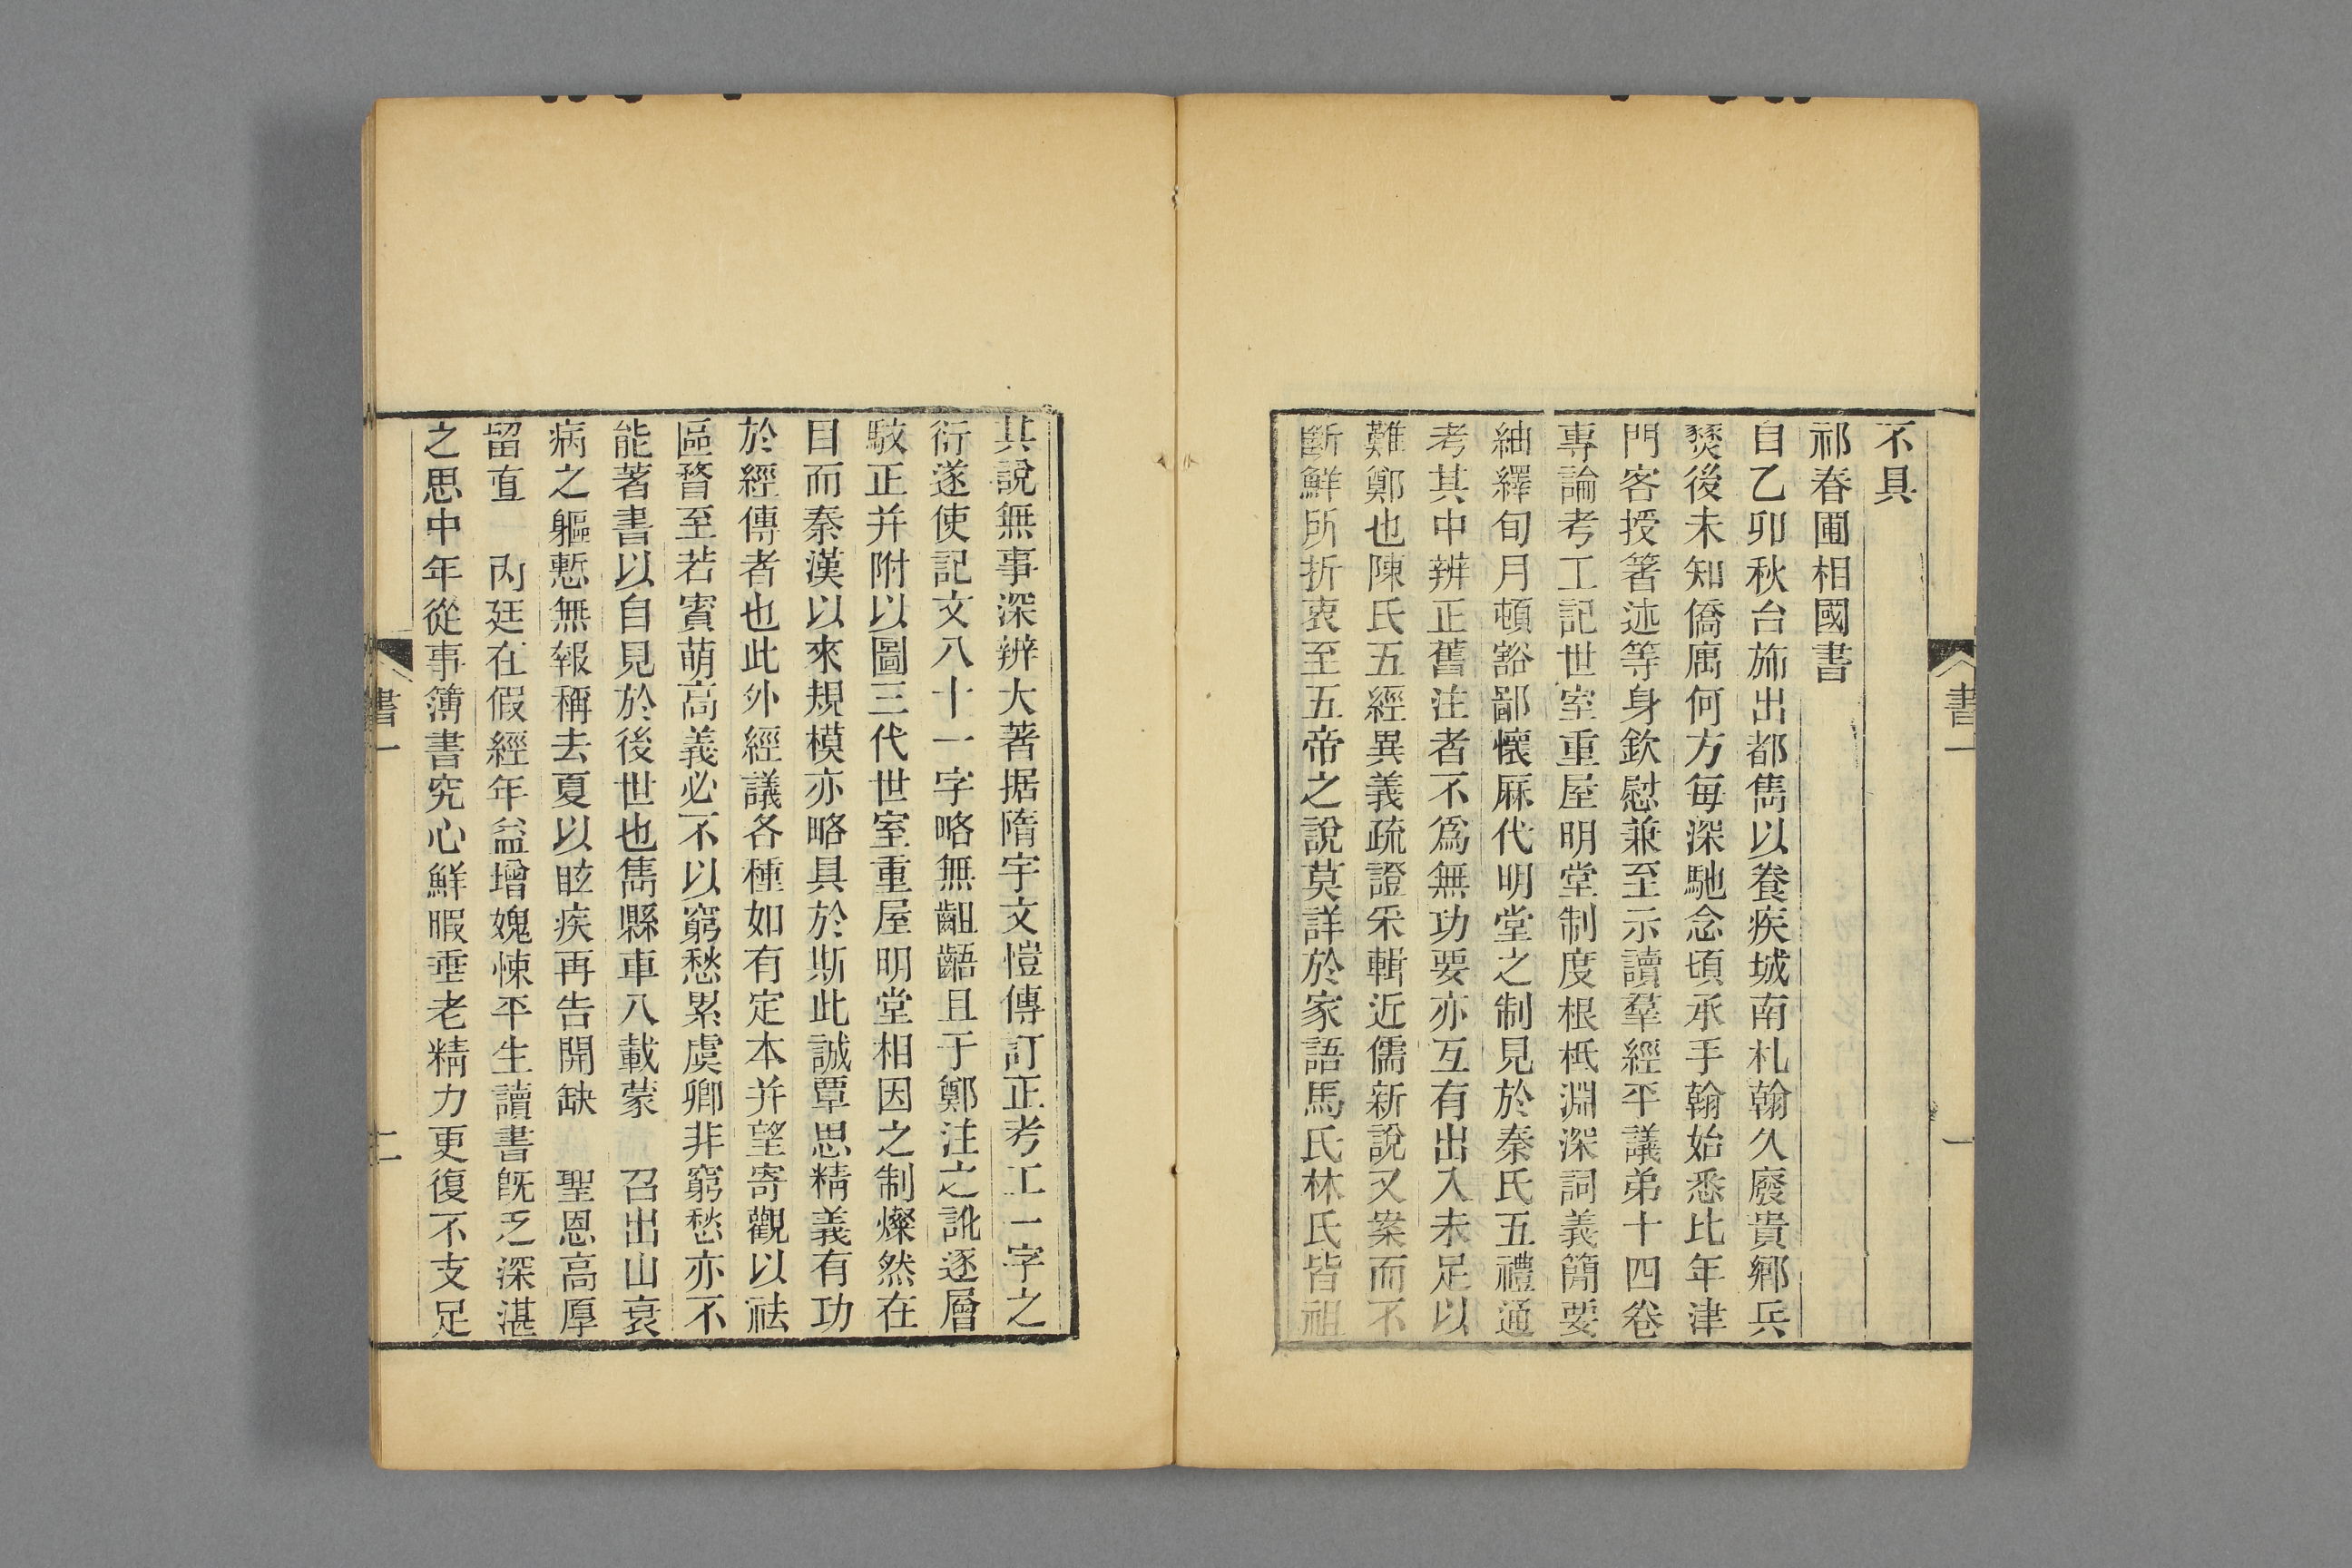 書一
一
不具
祁春圃相國書
自乙卯秋台斾出都雋以養疾城南札翰久廢貴鄉兵
燹後未知僑寓何方每深馳念頃承手翰始悉比年津
門客授箸述等身欽慰兼至示讀羣經平議弟十四卷
專論考工記世室重屋明堂制度根柢淵深詞義簡要
紬繹旬月頓豁鄙懷厤代明堂之制見於秦氏五禮通
考其中辨正舊注者不爲無功要亦互有出入未足以
難鄭也陳氏五經異義疏證采輯近儒新說叉䊛而不
斷鮮所折衷至五帝之說莫詳於家語馬氏林氏皆祖
其說無事深辨大著据隋宇文愷傳訂正考工一字之
衍遂使記文八十一字略無齟齬且于鄭注之訛逐層
駮正并附以圖三代世室重屋明堂相因之制燦然在
目而秦漢以來規模亦略具於斯此誠覃思精義有功
於經傳者也此外經議各種如有定本并望寄觀以祛
區瞀至若賓萌高義必不以窮愁累虞卿非窮愁亦不
能著書以自見於後世也雋縣車八載蒙　召出山衰
病之軀慙無報稱去夏以眩疾再告開缺　聖恩高厚
留直　內廷在假經年益增媿悚平生讀書既乏深湛
之思中年從事簿書究心鮮暇垂老精力更復不支足
書一
二